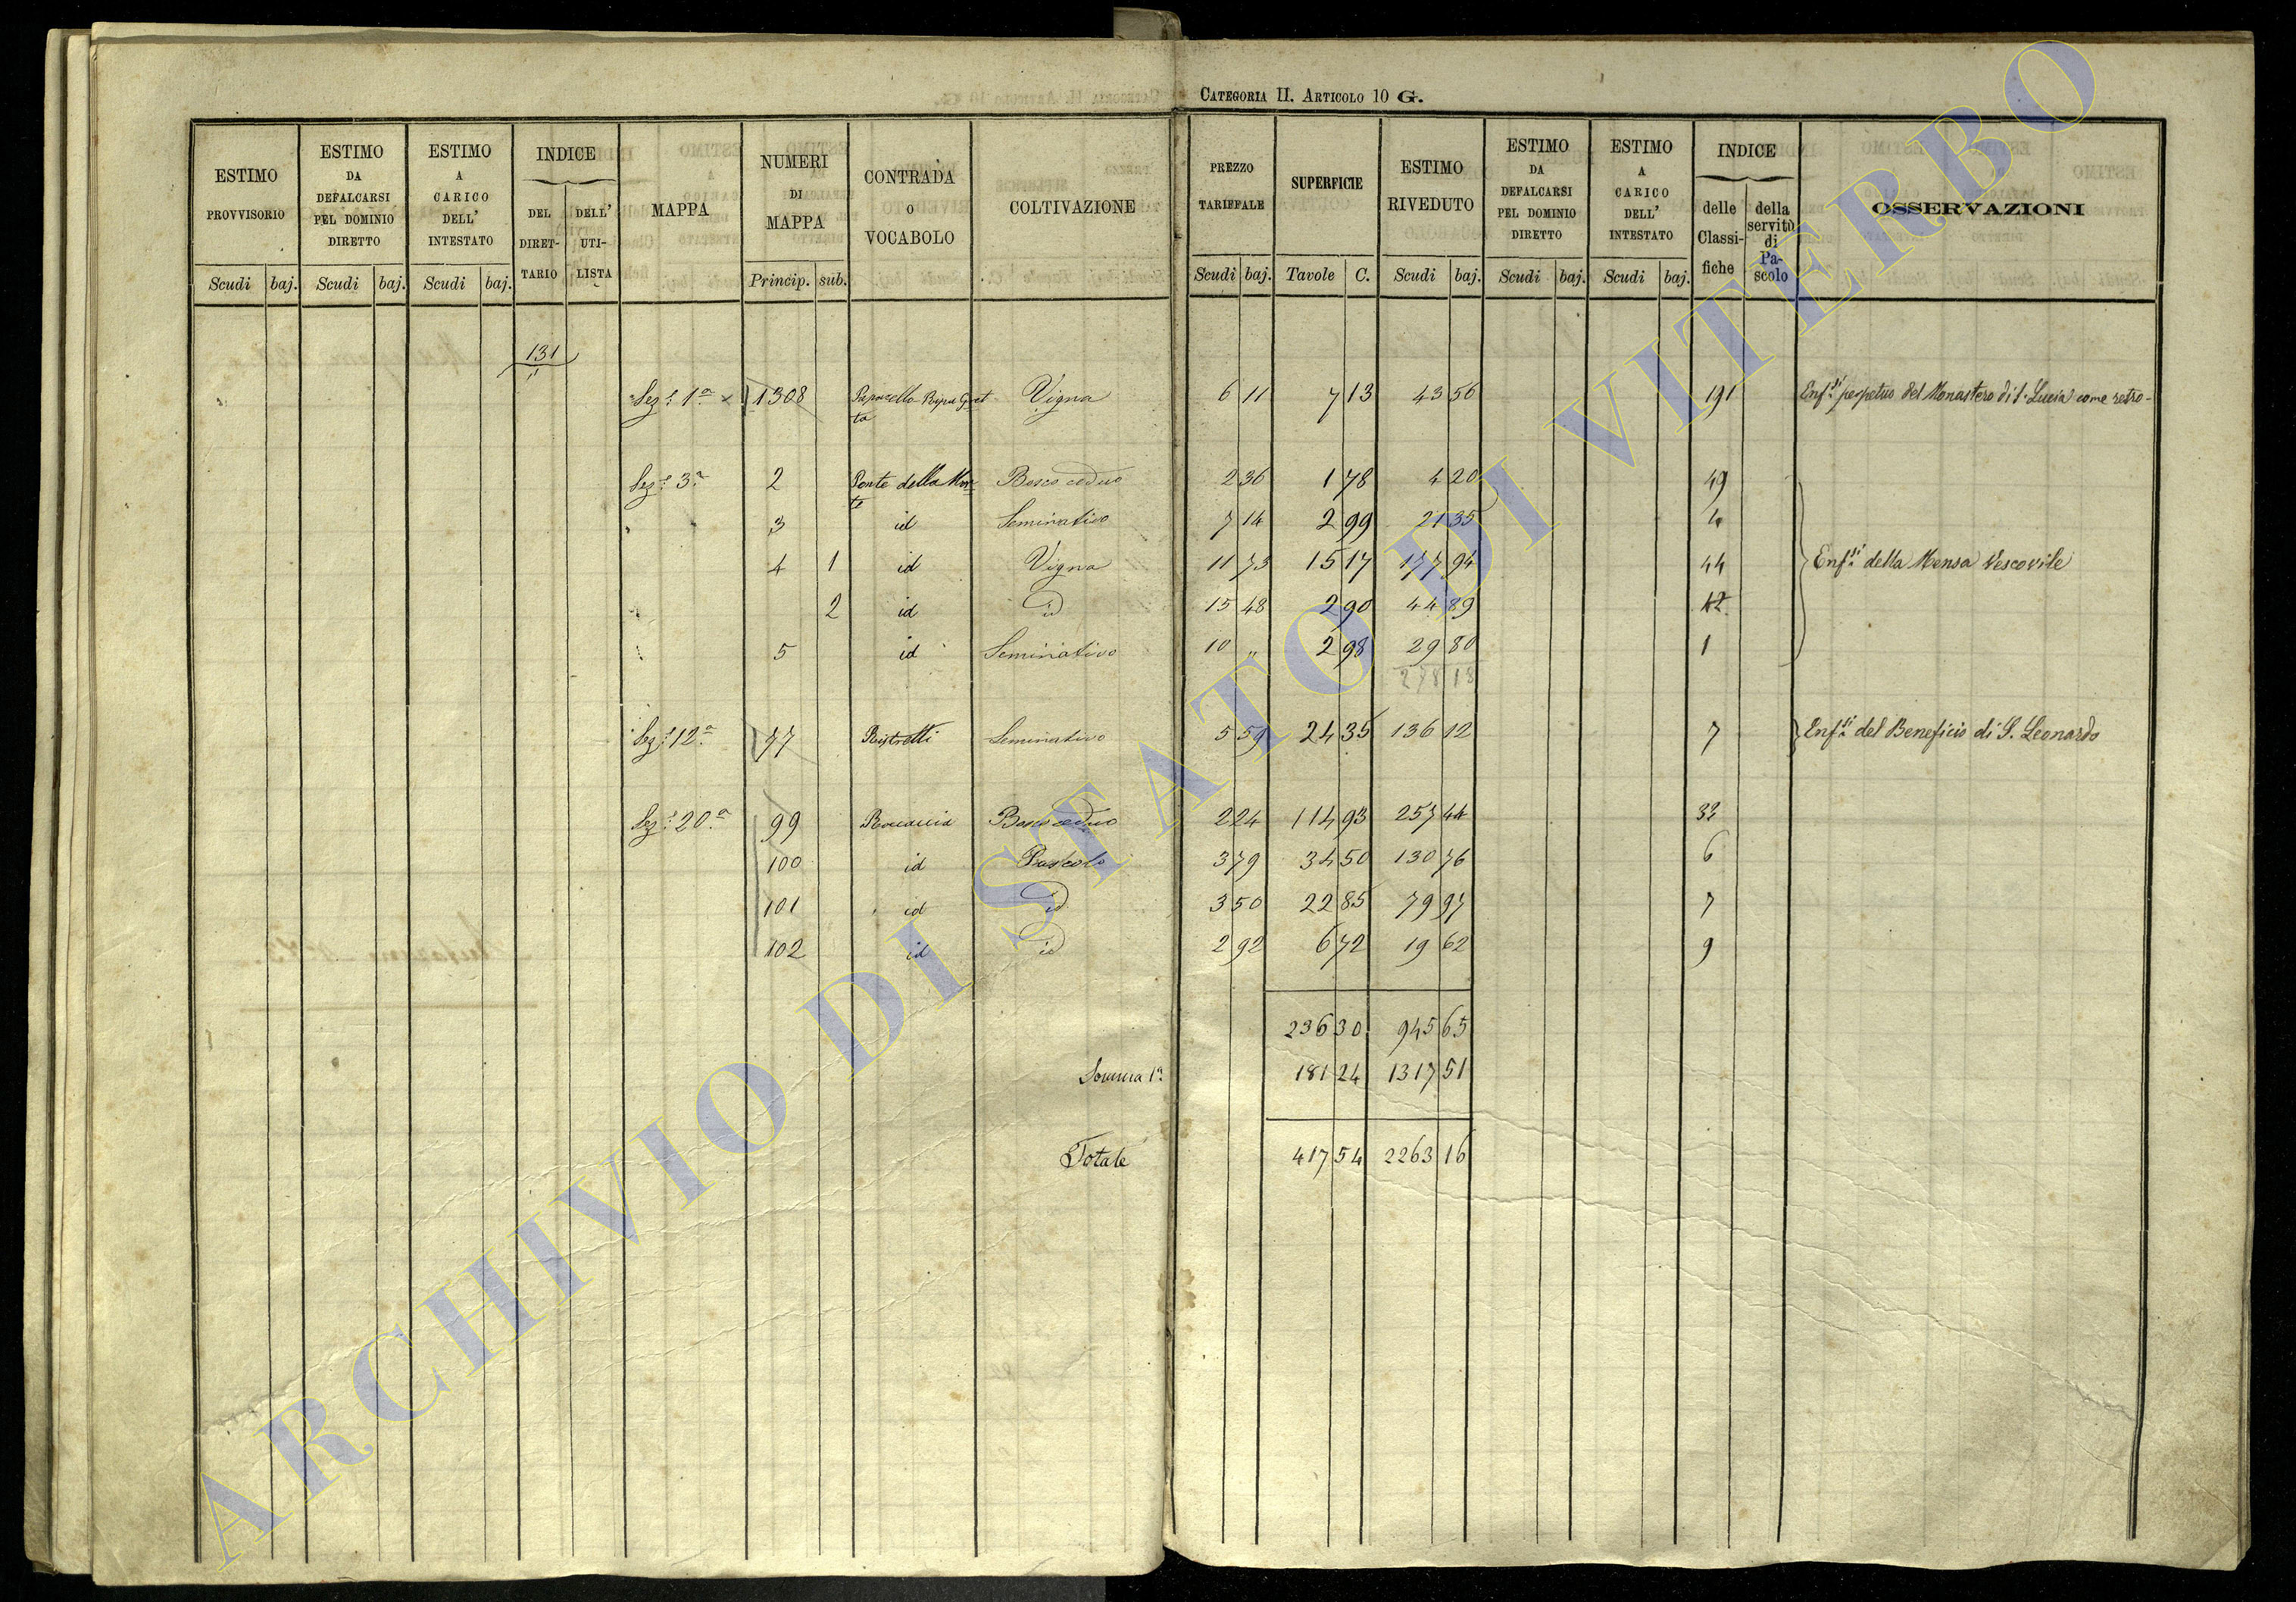 CATEGORIA II. ARTICOLO 10 G.
ESTIMO PROVVISORIO Scudi baj.
ESTIMO DA DEFALCARSI PEL DOMINIO DIRETTO Scudi baj.
ESTIMO A CARICO DELL' INTESTATO Scudi baj.
INDICE DEL DIRETTARIO DELL' UTILISTA
MAPPA
NUMERI DI MAPPA Princip. sub.
CONTRADA O VOCABOLO
COLTIVAZIONE
PREZZO TARIFFALE Scudi baj.
SUPERFICIE Tavole C.
ESTIMO RIVEDUTO Scudi baj.
ESTIMO DA DEFALCARSI PEL DOMINIO DIRETTO Scudi baj.
ESTIMO A CARICO DELL' INTESTATO Scudi baj.
INDICE delle Classifiche della servitù di Pascolo
OSSERVAZIONI
131
Sez.e 1a 1308 Vigna 6 11 7 13 43 56 191 Enf.si perpetua del Monastero di S. Lucia come retro
Sez.e 3a 2 Ponte della Morte Bosco ceduo 2 36 1 78 4 20 49
3 id Seminativo 7 14 2 99 21 35
4 1 id Vigna 11 73 15 17 177 94 44 Enf.si della Mensa Vescovile
2 id id 15 48 2 90 44 89 42
5 id Seminativo 10 „ 2 98 29 80 1
278 18
Sez.e 12a 77 Ristretti Seminativo 5 59 24 35 136 12 7 Enf.si del Beneficio di S. Leonardo
Sez.e 20a 99 Roccaccia Bosco ceduo 2 24 114 93 257 44 32
100 id Pascolo 3 79 34 50 130 76 6
101 id id 3 50 22 85 79 97 7
102 id id 2 92 6 72 19 62 9
236 30 945 65
Somma 1a 181 24 1317 51
Totale 417 54 2263 16
ARCHIVIO DI STATO DI VITERBO